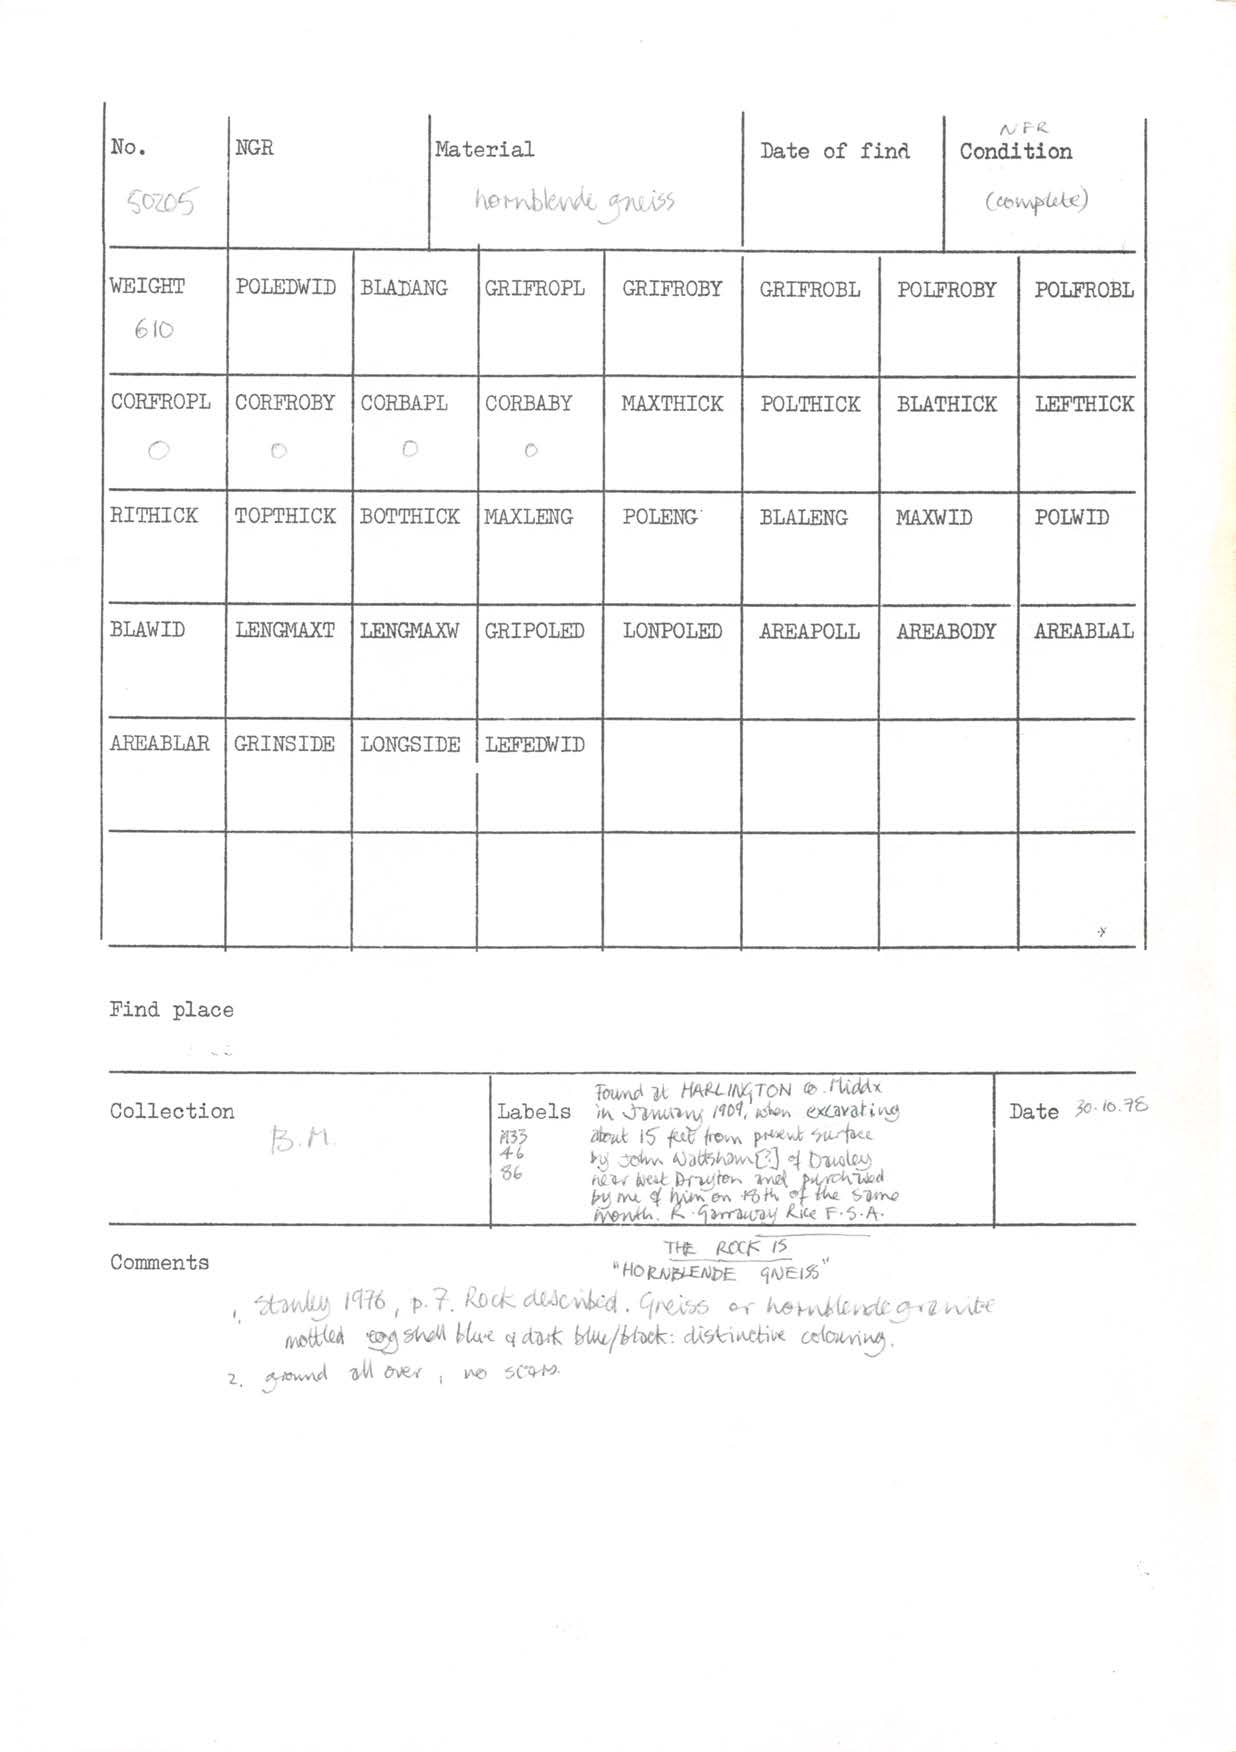 NFR
No. NGR Material Date of find Condition
50205 hornblende gneiss (complete)
WEIGHT POLEDWID BLADANG GRIFROPL GRIFROBY GRIFROBL POLFROBY POLFROBL
610
CORFROPL CORFROBY CORBAPL CORBABY MAXTHICK POLTHICK BLATHICK LEFTHICK
0 0 0 0
RITHICK TOPTHICK BOTTHICK MAXLENG POLENG BLALENG MAXWID POLWID
BLAWID LENGMAXT LENGMAXW GRIPOLED LONPOLED AREAPOLL AREABODY AREABLAL
AREABLAR GRINSIDE LONGSIDE LEFEDWID
Find place
Collection
B.M.
Labels
M33
46
86
Found at HARLINGTON Co. Middx
in January 1909, when excavating
about 15 feet from present surface
by John Wattsham[?] of Dawley
near West Drayton and purchased
by me of him on 18th of the same
month. R. Garraway Rice F.S.A.
THE ROCK IS
"HORNBLENDE GNEISS"
Date 30.10.78
Comments
1. Stanley 1976, p.7. Rock described. Gneiss or hornblende granite
mottled egg shell blue & dark blue/black: distinctive colouring.
2. ground all over, no scars.